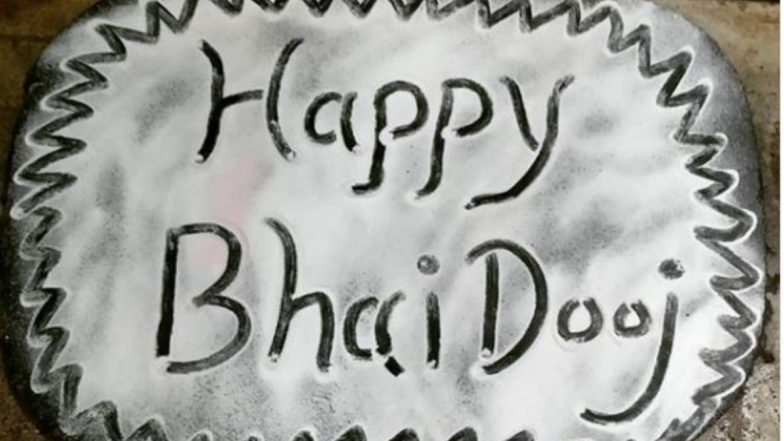 Happy
Bhai Dooj